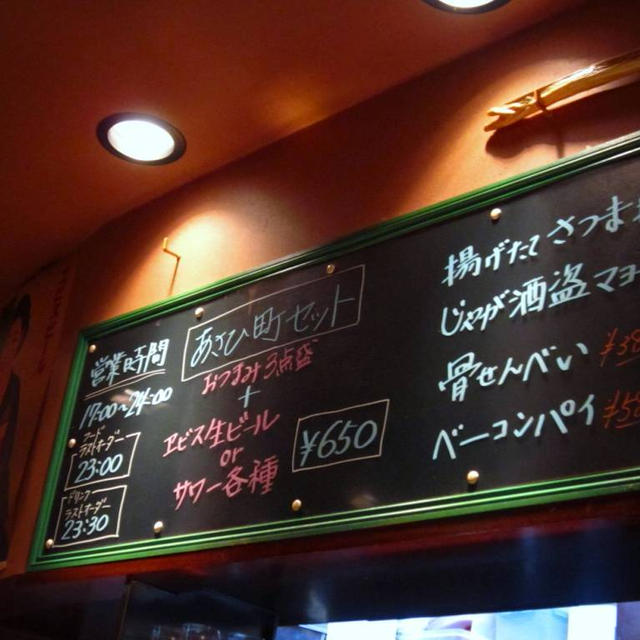 営業時間
17:00〜24:00
フード
ラストオーダー
23:00
ドリンク
ラストオーダー
23:30
あさひ町セット
おつまみ3点盛
+
ヱビス生ビール
or
サワー各種
¥650
揚げたて さつま
じゃが酒盗マヨ
骨せんべい
ベーコンパイ